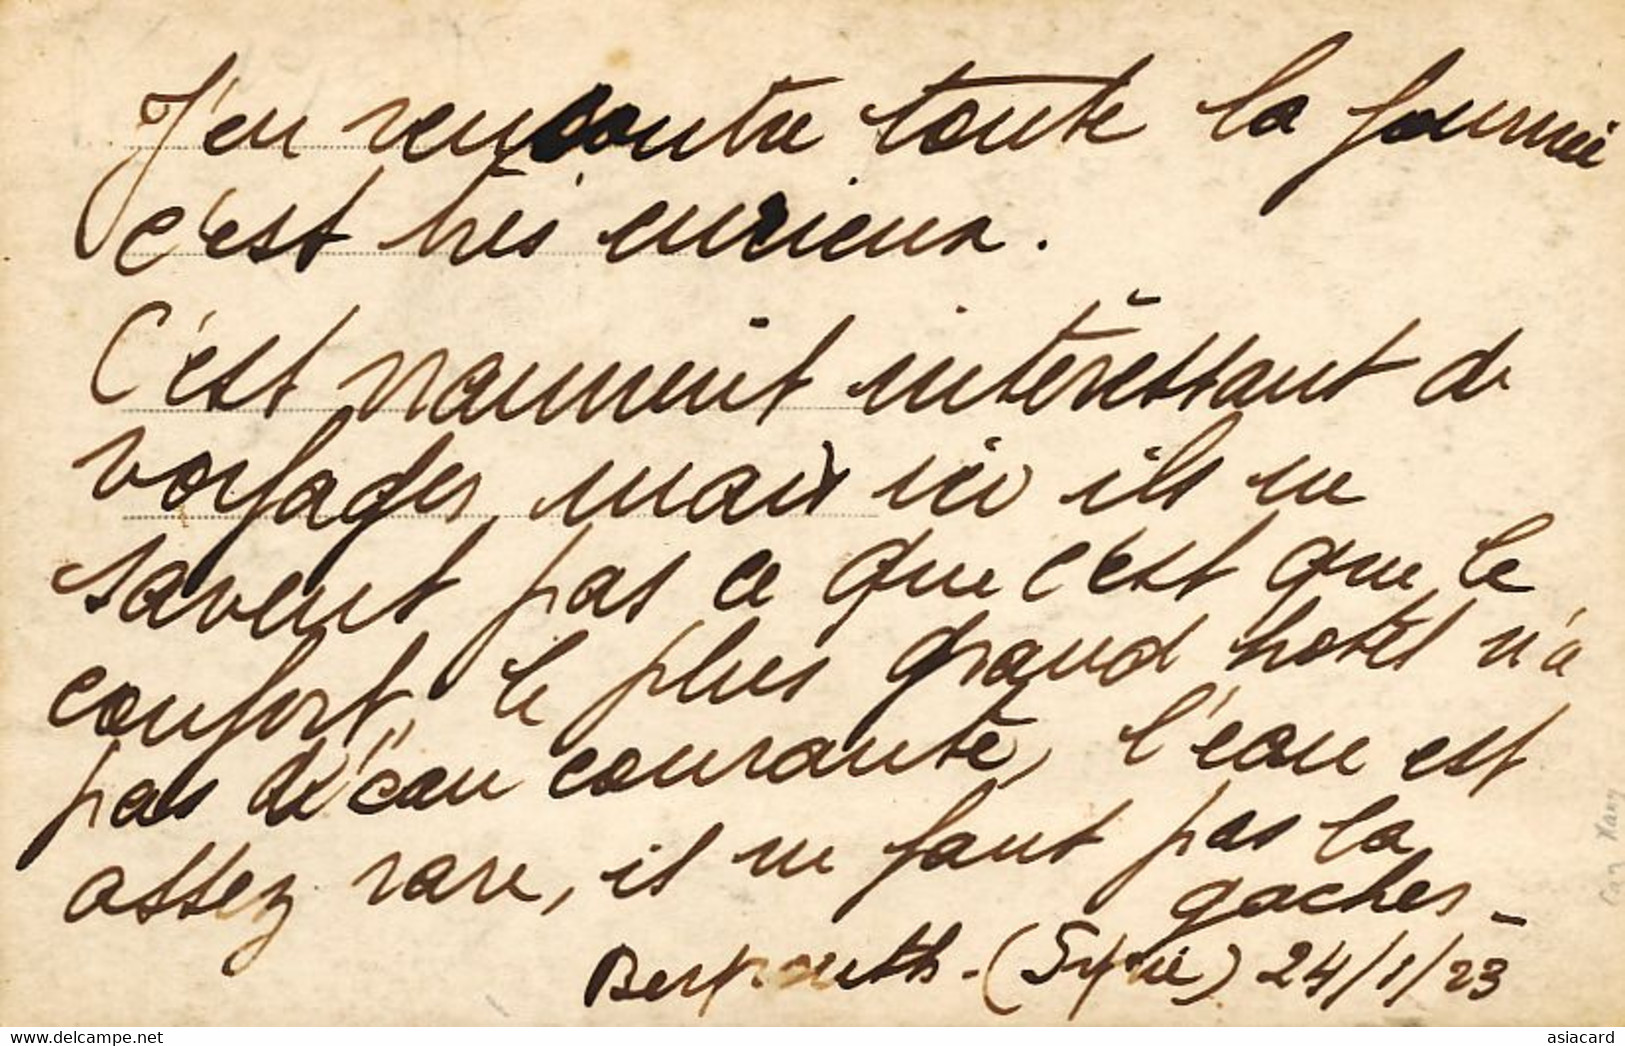 J'en rencontre toute la journée
c'est très curieux.
C'est vraiment intèressant de
voyages, mais ici ils ne
savent pas ce que c'est que le
confort, le plus grand hotel n'a
pas de l'eau courante, l'eau est
assez rare, il ne faut pas la
gacher_
Beyrouth - (Syrie) 24/1/23
asiacard